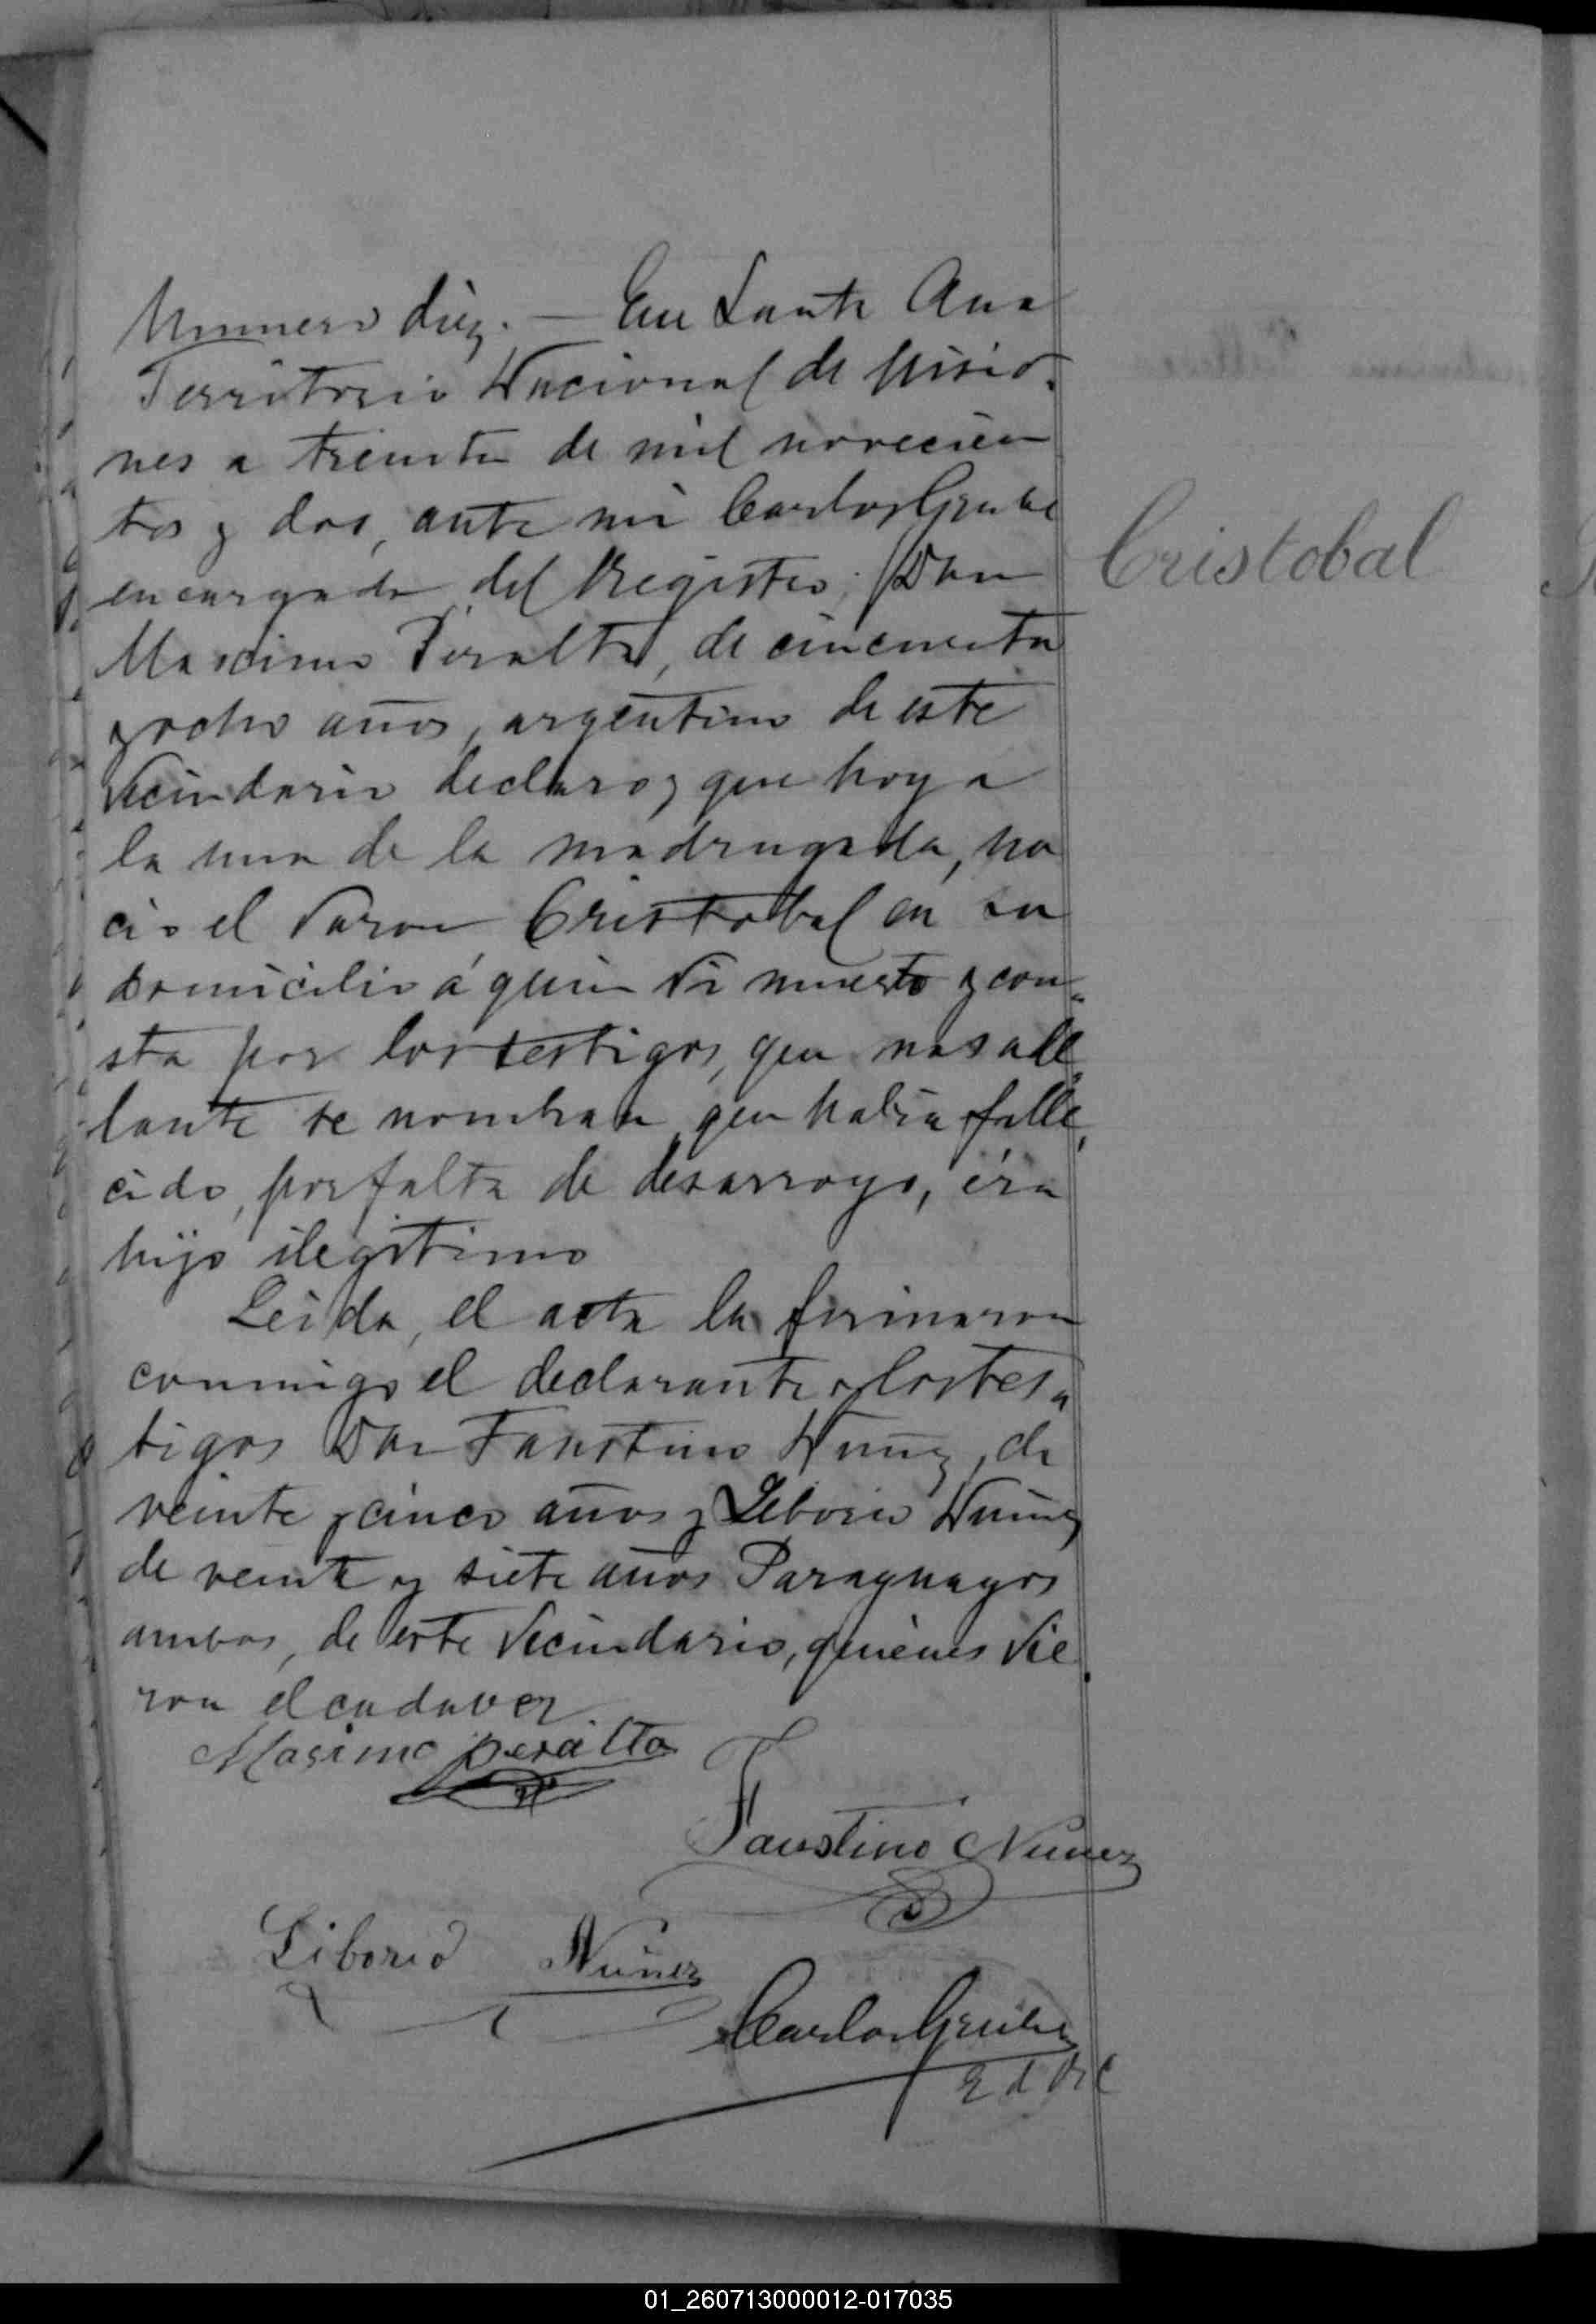 Numero diez. — En Santa Ana
Territorio Nacional de Misio-
nes a treinta de mil novecien
tos y dos, ante mi Carlos Gruber
encargado del Registro; Don
Maximo Peralta, de cincuenta
y ocho años, argentino de este
Vecindario declaro, que hoy a
la una de la madrugada, na
cio el Varon Cristobal en su
domicilio á quien vi muerto y con-
sta por los testigos, que mas ade
lante se nombran que habia falle
cido, por falta de desarroyo, éra
hijo ilegitimo
Leida, el acta la firmaron
conmigo el declarante y los tes-
tigos Don Faustino Nuñez, de
veinte y cinco años y Liborio Nuñez
de veinte y siete años Paraguayos
ambos, de este Vecindario, quiénes vie
ron el cadaver
Masimo peralta
Faustino Nuñez
Liborio Nuñez
Carlos Gruber
E d R C
Cristobal
01_260713000012-017035